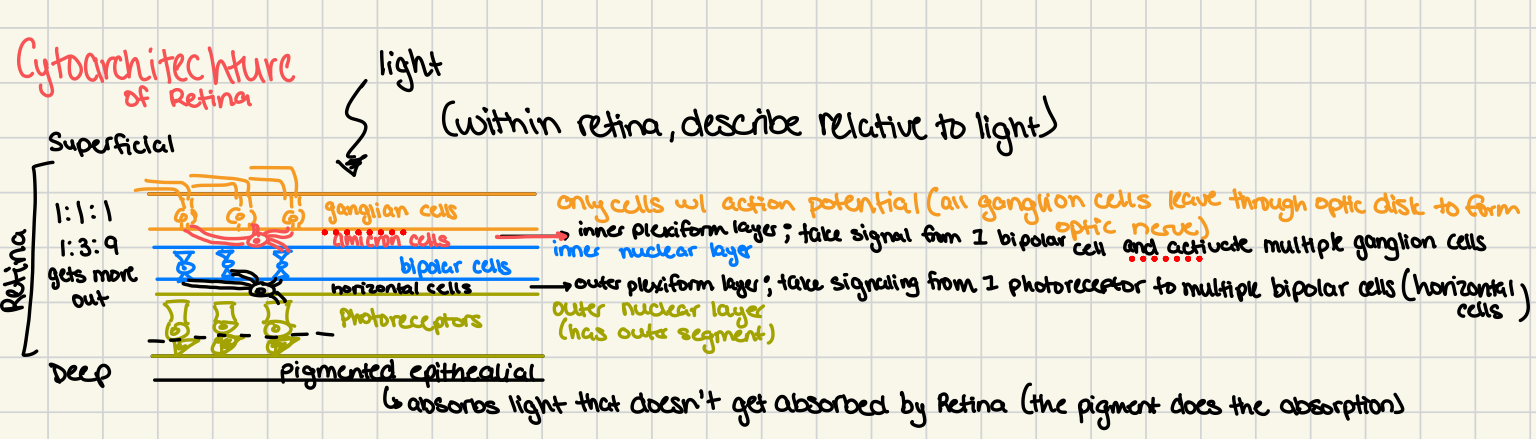 Cytoarchitechture
of Retina
light
(within retina, describe relative to light)
Superficial
Retina
1:1:1
1:3:9
gets more
out
Deep
ganglian cells
only cells w/ action potential (all ganglion cells leave through optic disk to form
optic nerve)
amicron cells
inner plexiform layer; take signal from 1 bipolar cell and activate multiple ganglion cells
bipolar cells
inner nuclear layer
horizontal cells
outer plexiform layer; take signaling from 1 photoreceptor to multiple bipolar cells (horizontal
cells)
Photoreceptors
outer nuclear layer
(has outer segment)
pigmented epithealial
absorbs light that doesn't get absorbed by Retina (the pigment does the absorption)